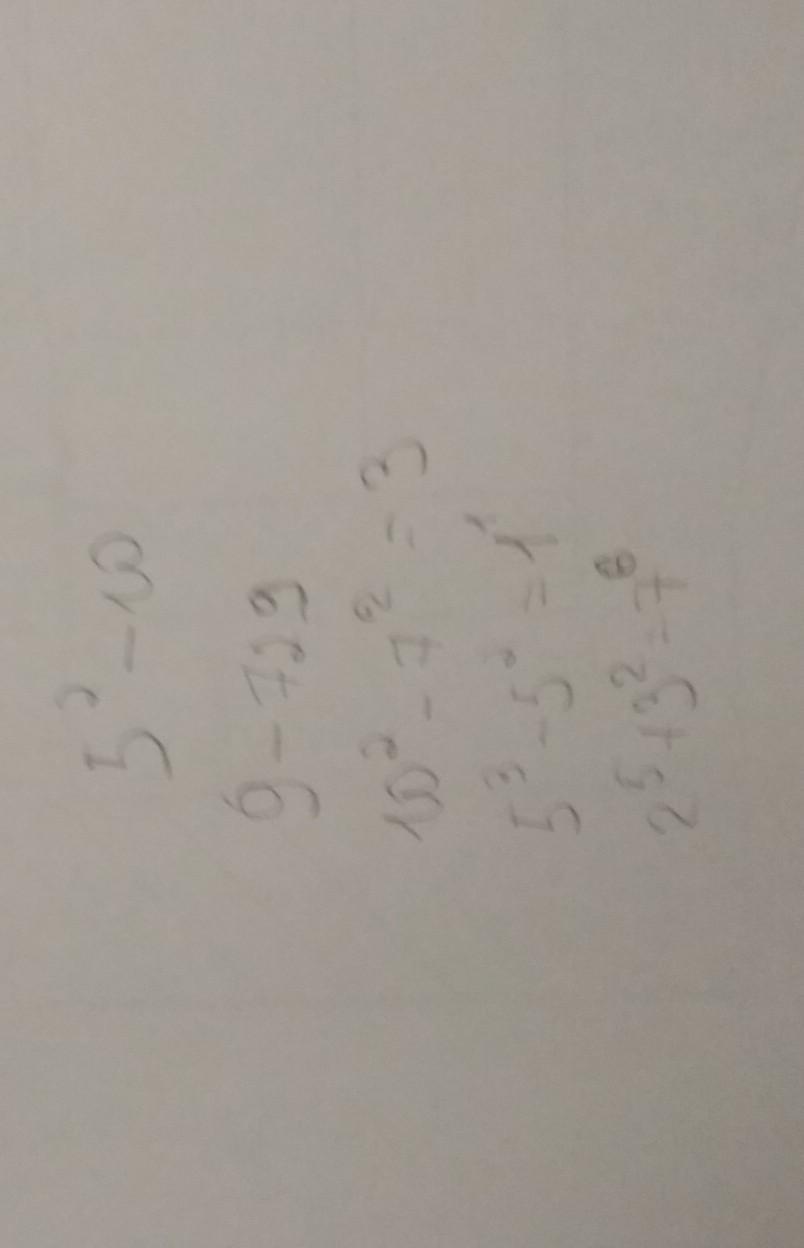 5² - 10
9 - 729
10² - 7² = 3
5³ - 5² = 1¹
2⁵ + 3² = 7⁸